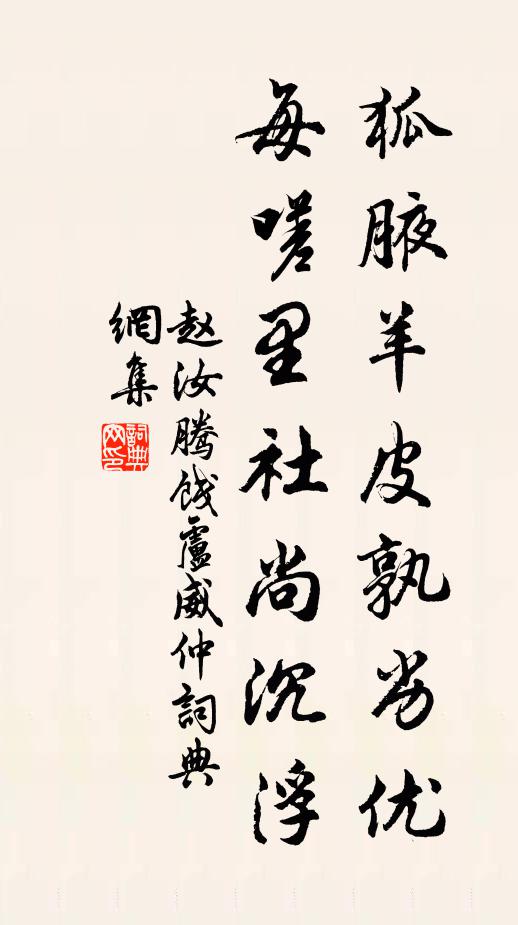 狐腋羊皮孰劣优
每嗟里社尚沉浮
赵汝腾饯盧威仲詞典
網集
詞典
网印